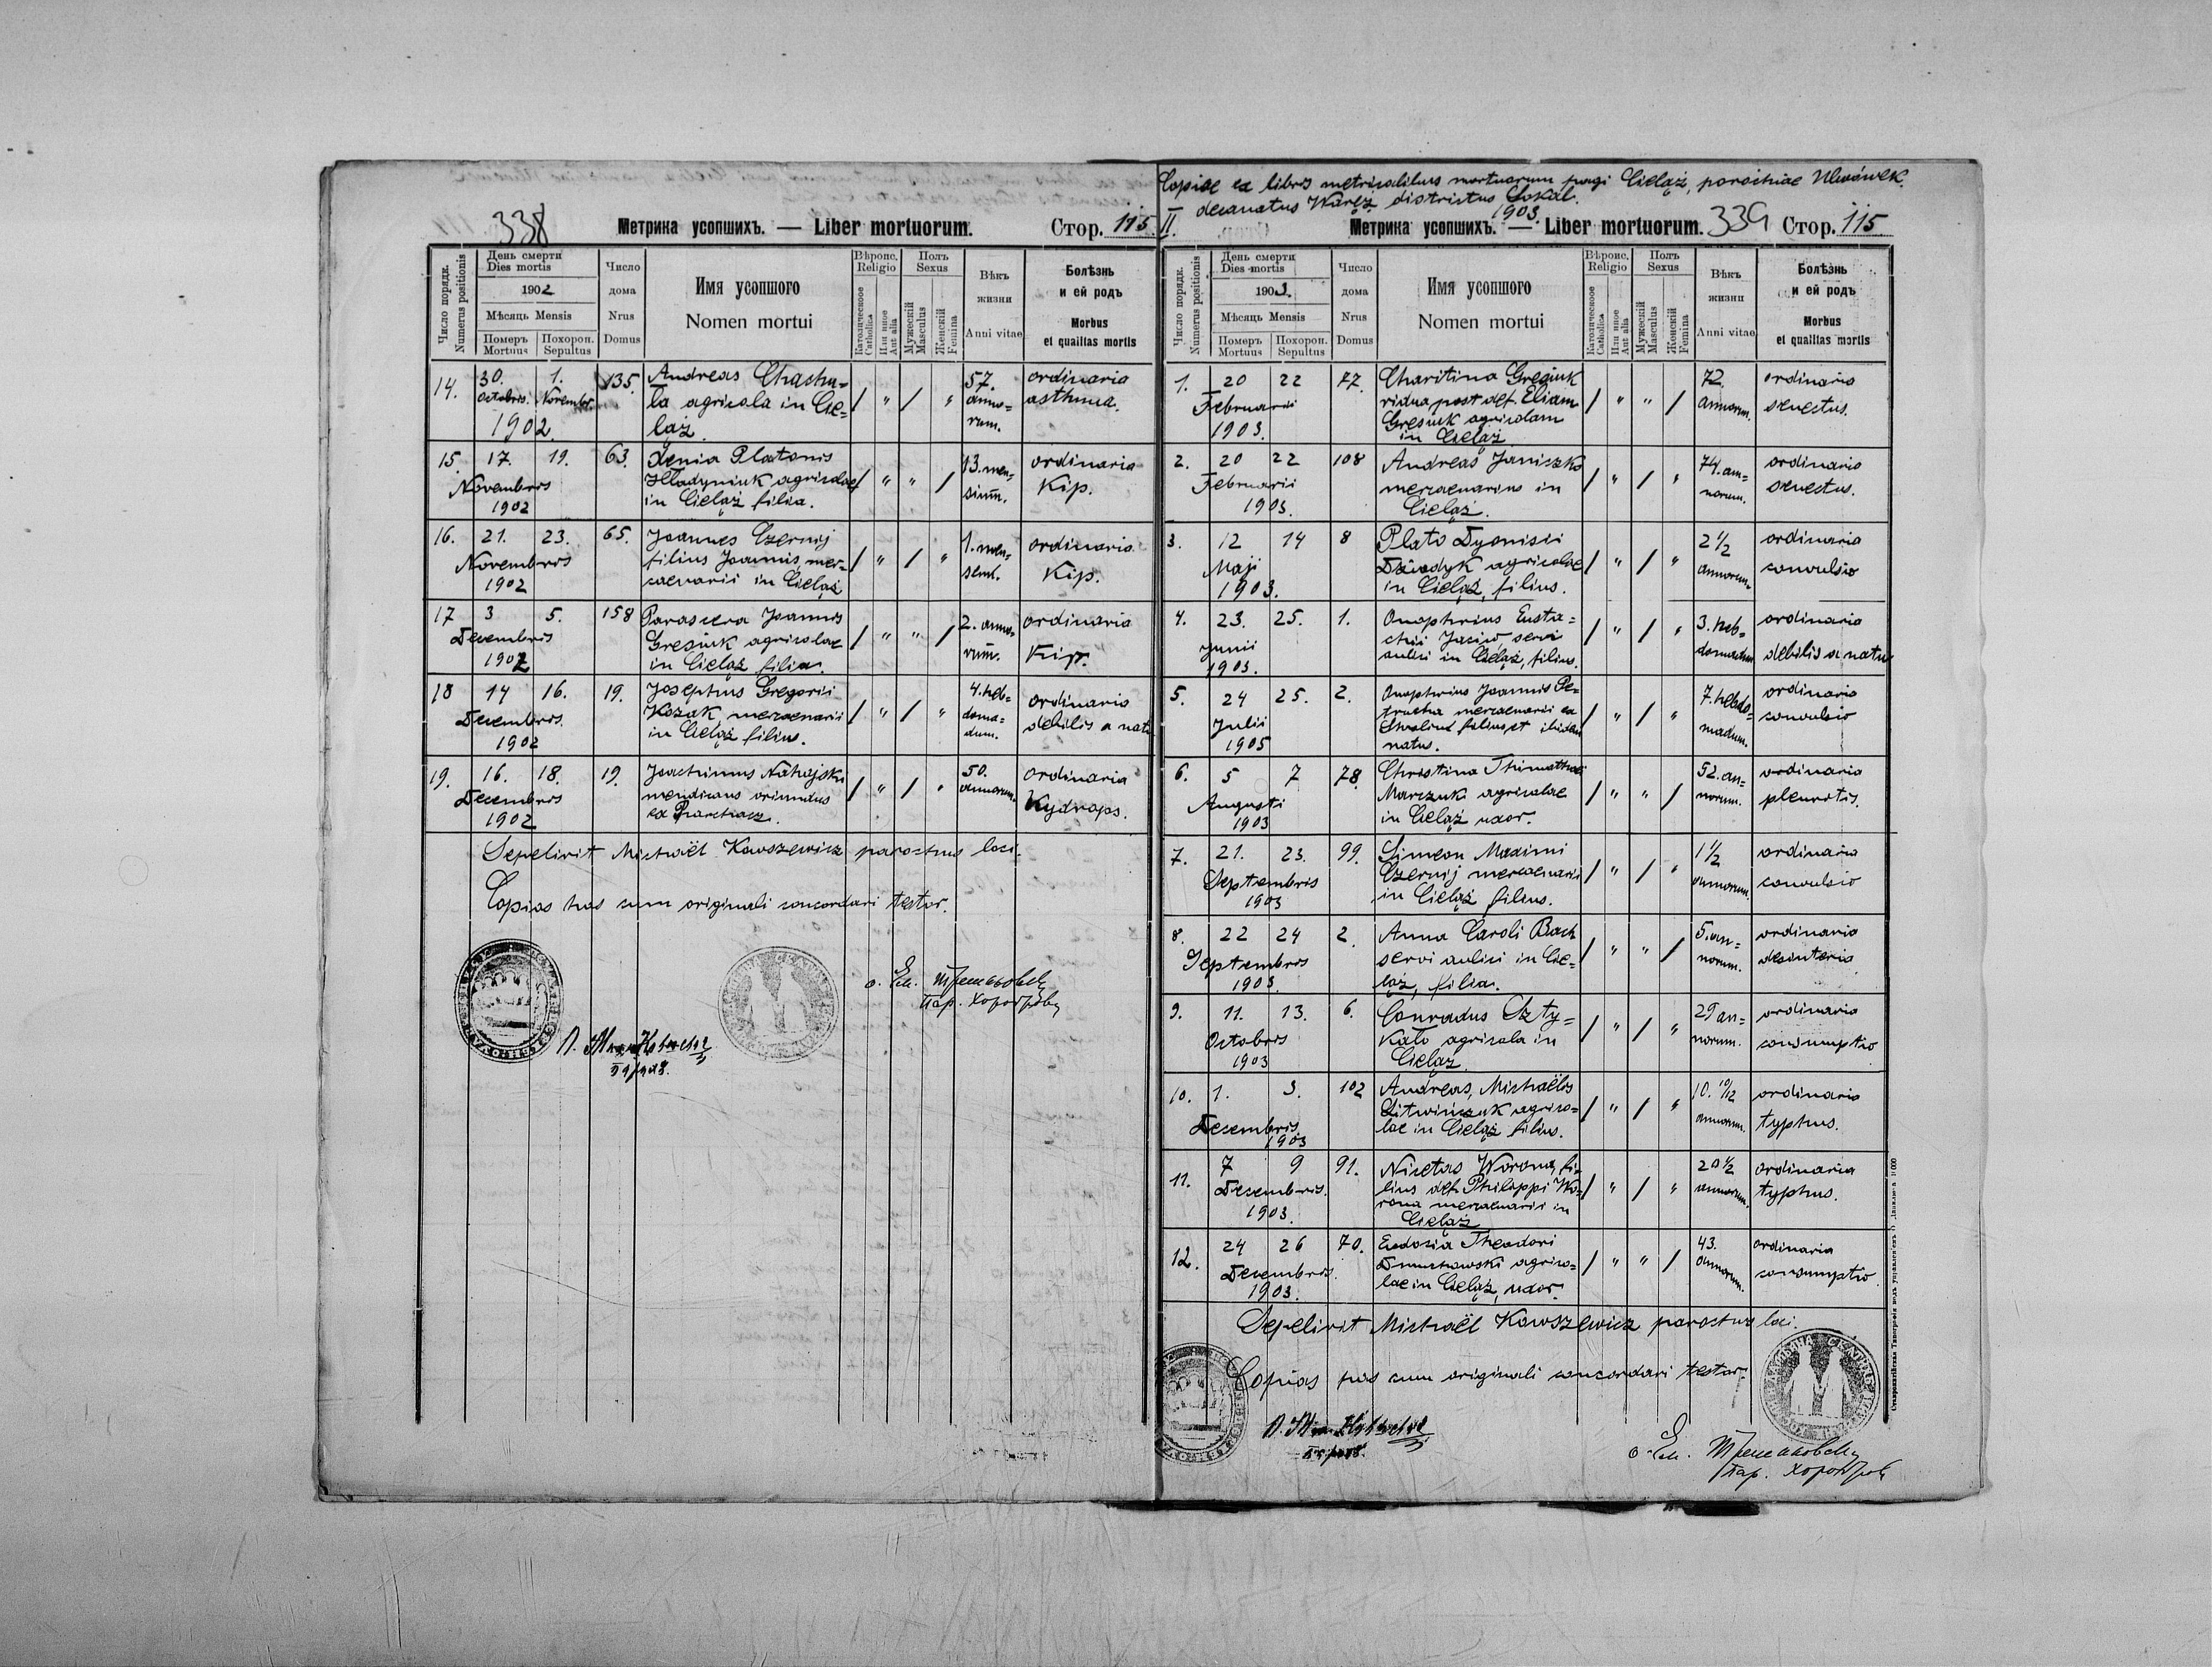 338
Метрика усопшихъ. — Liber mortuorum.
Стор. 115
Число порядк.
Numerus positionis
День смерти
Dies mortis
1902
Мѣсяць Mensis
Померъ Mortuus
Похорон. Sepultus
Число дома
Nrus Domus
Имя усопшого
Nomen mortui
Вѣроис. Religio
Католическое Catholica
Или иное Aut alia
Полъ Sexus
Мужескій Masculus
Женскій Femina
Вѣкъ жизни
Anni vitae
Болѣзнь и ей родъ
Morbus et qualitas mortis
14. 30. Octobris. 1. Novembr. 1902. 135
Andreas Chachu=
la agricola in Cie=
ląż.
/ " / "
57. anno=
rum.
ordinaria
asthma.
15. 17. 19. Novembris 1902 63.
Xenia Platonis
Hladyniuk agricolae
in Cieląż filia.
/ " " /
13. men=
sium.
ordinaria
Kip.
16. 21. 23. Novembris 1902 65.
Joannes Czernij
filius Joannis, mer=
caenarii in Cieląż
/ " / "
1. men=
sem.
ordinaria
Kip.
17 3 5. Decembris 1902 158
Parascera Joannis
Gresiuk agricolae
in Cieląż filia.
/ " " /
2. anno=
rum.
ordinaria
Kip.
18 14 16. Decembris. 1902 19.
Josephus Gregorii
Kozak, mercaenarii
in Cieląż filius.
/ " / "
4. heb=
doma=
dum.
ordinaria
debilis a natu
19. 16. 18. Decembris 1902 19.
Joachimus Nahajski
mendicans oriundus
ex Parchacz.
/ " / "
50.
annorum.
ordinaria
Kydrops.
Sepelivit Michaël Kowszewicz parochus loci.
Copias has cum originali concordari testor.
Copiae ex libris metricalibus mortuorum pagi Cieląż, parochiae Ulwówek,
decanatus Waręż districtus Sokal.
II. 1903.
Метрика усопшихъ. — Liber mortuorum.
339
Стор. 115
Число порядк.
Numerus positionis
День смерти
Dies mortis
1903.
Мѣсяць Mensis
Померъ Mortuus
Похорон. Sepultus
Число дома
Nrus Domus
Имя усопшого
Nomen mortui
Вѣроис. Religio
Католическое Catholica
Или иное Aut alia
Полъ Sexus
Мужескій Masculus
Женскій Femina
Вѣкъ жизни
Anni vitae
Болѣзнь и ей родъ
Morbus et qualitas mortis
1. 20 22 Februarii 1903. 77.
Charitina Gresiuk
vidua post def. Eliam
Gresiuk agricolam
in Cieląż
/ " " /
72.
annorum.
ordinaria
senectus.
2. 20 22 Februarii 1903. 108
Andreas Janiszko
mercaenarius in
Cieląż.
/ " / "
74. an=
norum.
ordinaria
senectus.
3. 12 14 Maji 1903. 8
Plato Dyonisii
Dziadyk agricolae
in Cieląż, filius.
/ " / "
2 1/2
annorum.
ordinaria
convulsio
4. 23. 25. Junii 1903. 1.
Onophrius Eusta=
chii Jaciw servi
aulici in Cieląż, filius.
/ " / "
3. heb=
domadum
ordinaria
debilis a natu
5. 24 25. Julii 1905 2.
Onophrius Joannis Pe=
trucha mercaenarii ex
filius et ibidem
natus.
/ " / "
7. hebdo=
madum.
ordinaria
convulsio
6. 5 7 Augusti 1903 78.
Christina Thimothei
Marczuk agricolae
in Cieląż uxor.
/ " " /
52. an=
norum.
ordinaria
pleuritis.
7. 21. 23. Septembris 1903 99.
Simeon Maximi
Czernij mercaenarii
in Cieląż filius.
/ " / "
1 1/2
annorum.
ordinaria
convulsio
8. 22 24 Septembris 1903. 2.
Anna Caroli Bach
servi aulici in Cie=
ląż, filia.
/ " " /
5. an=
norum.
ordinaria
desinteria
9. 11. 13. Octobris 1903 6.
Conradus Szty=
kało agricola in
Cieląż.
/ " / "
29 an=
norum.
ordinaria
consumptio
10. 1. 3. Decembris 1903 102
Andreas, Michaëlis
Litwińczuk agrico=
lae in Cieląż filius.
/ " / "
10. 10/12
annorum.
ordinaria
typhus.
11. 7 9 Decembris. 1903. 91.
Nicetas Worona, fi=
lius def. Philippi Wo=
rona mercaenarii in
Cieląż
/ " / "
20 1/2
annorum.
ordinaria
typhus.
12. 24 26 Decembris. 1903. 70.
Eudoxia Theodori
Dmuchowski agrico=
lae in Cieląż, uxor.
/ " " /
43.
annorum.
ordinaria
consumptio
Sepelivit Michaël Kowszewicz parochus loci.
Copias has cum originali concordari testor.